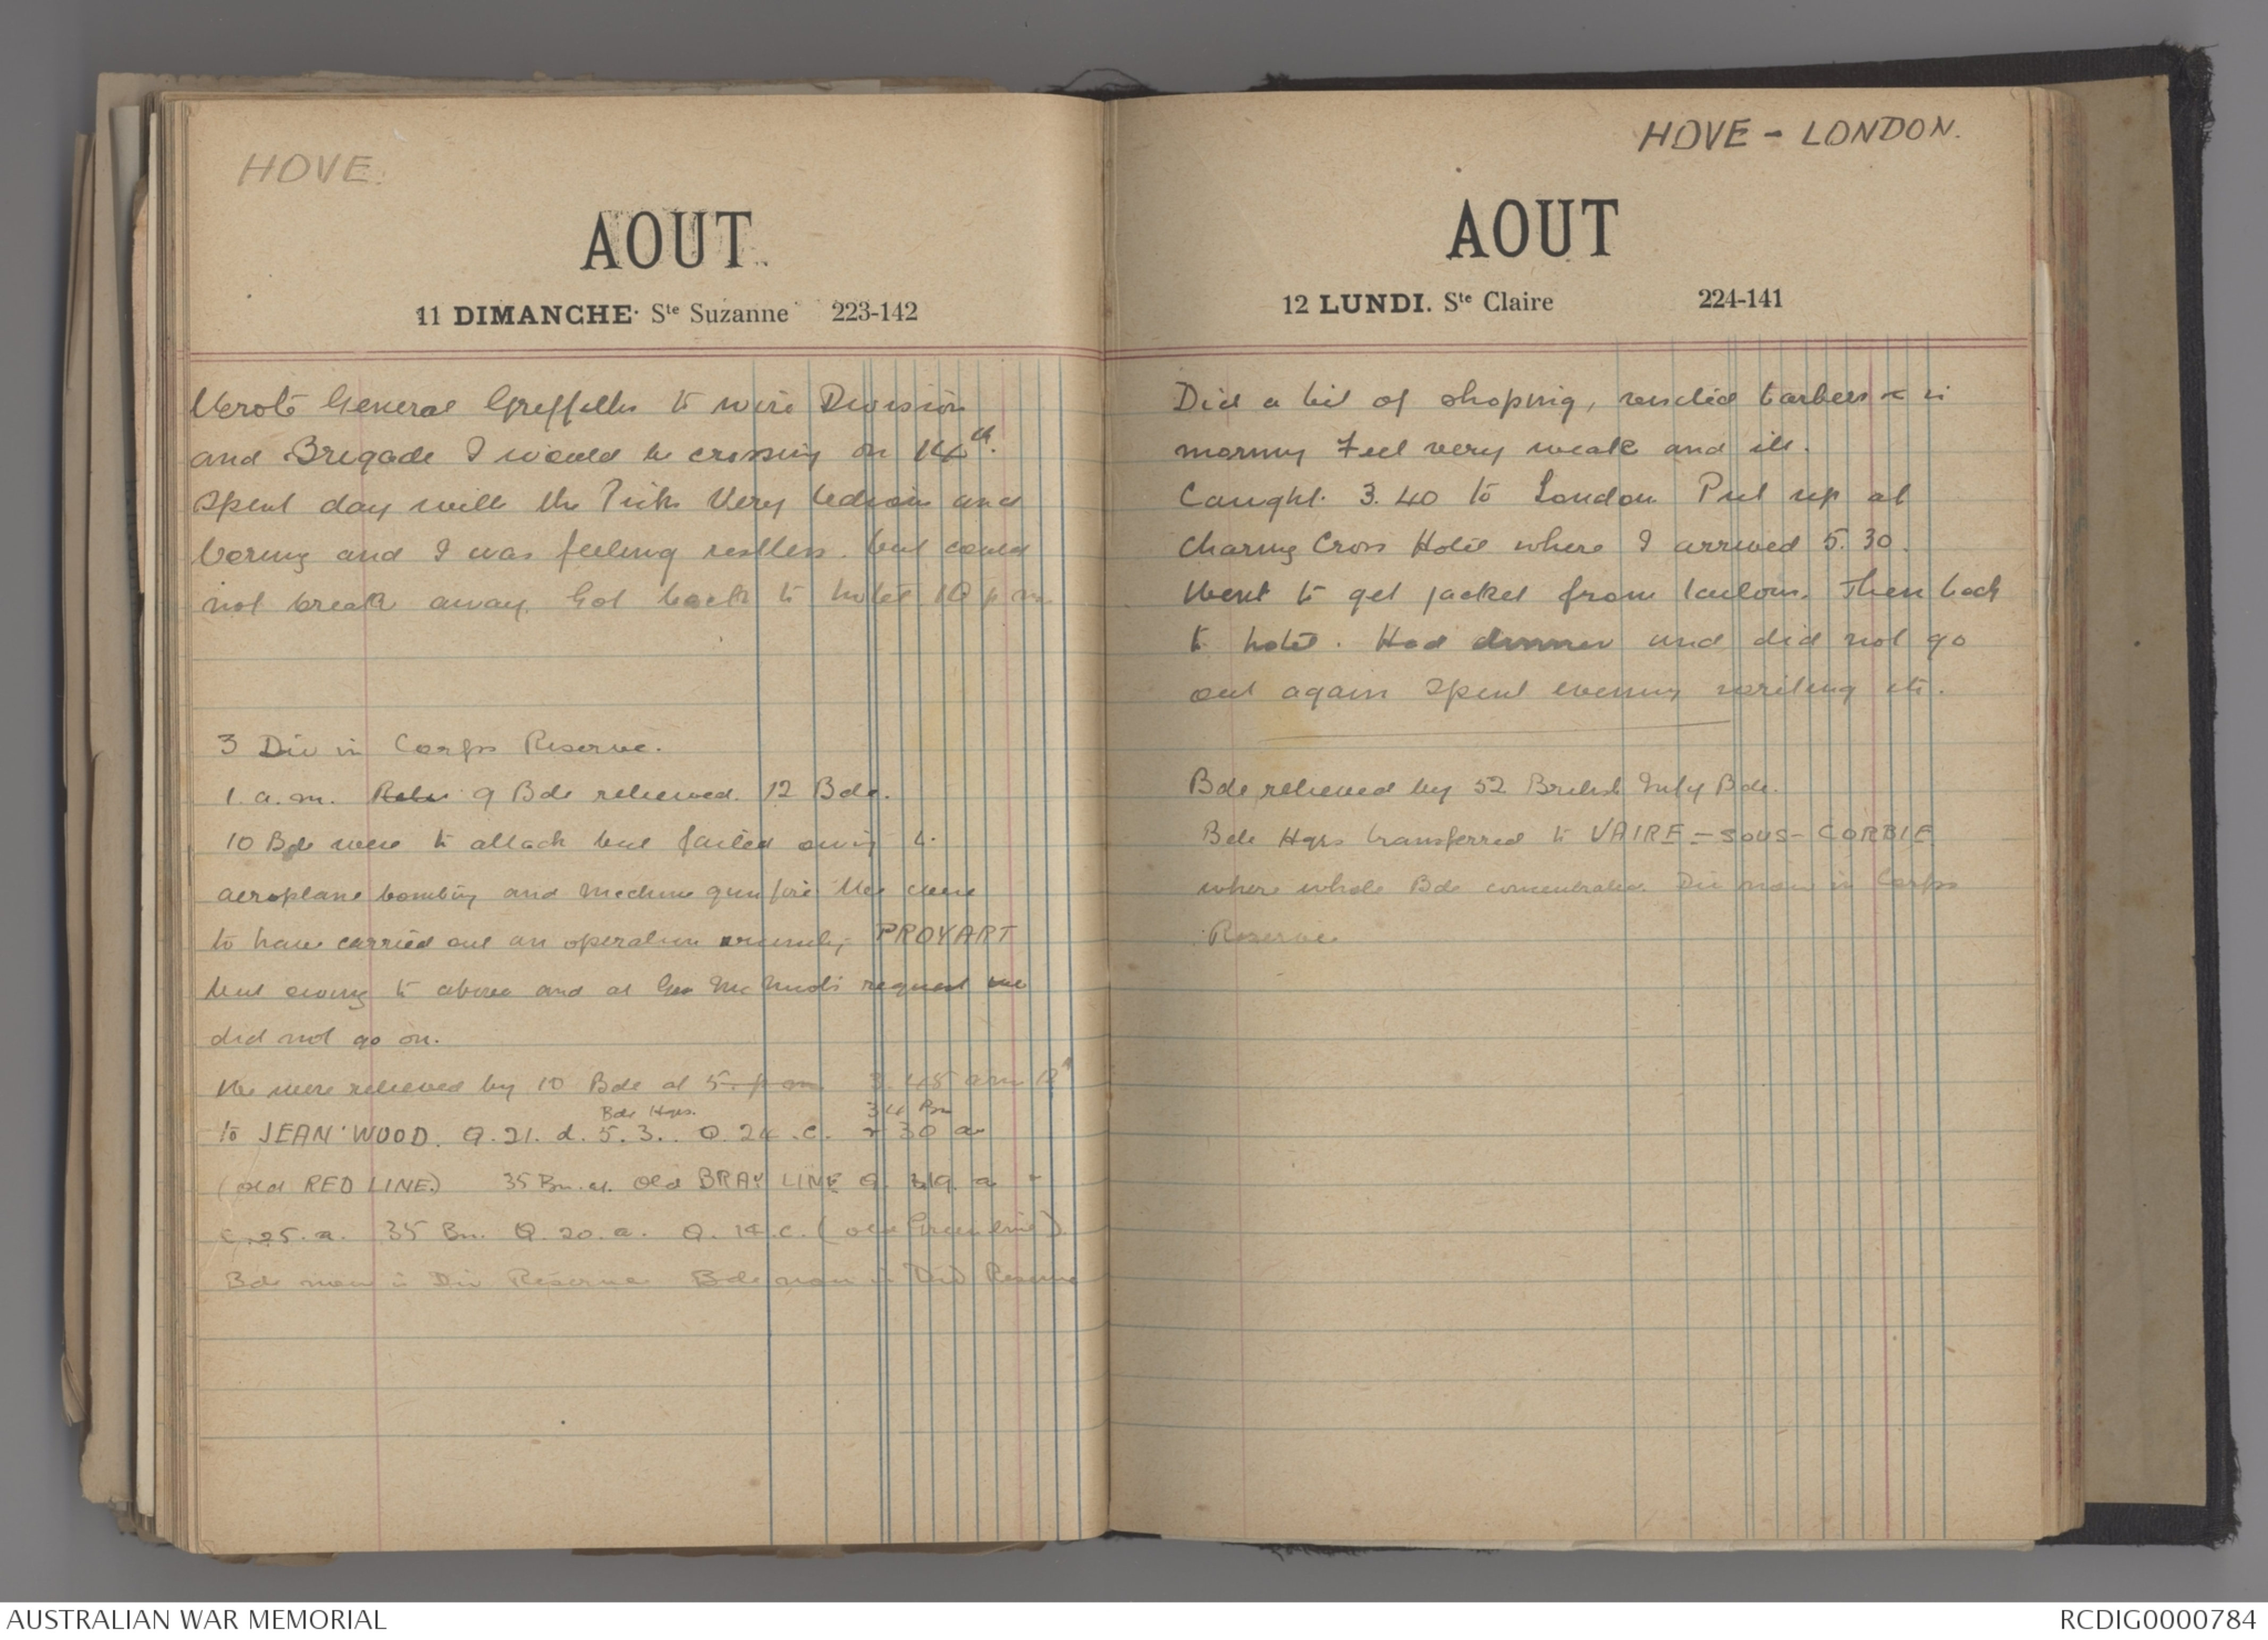 HOVE.
AOUT
11 DIMANCHE. Ste Suzanne 223-142
Wrote General Griffiths to wire Division
and Brigade I would be crossing on 14th.
Spent day with the Very tedious and
boring and I was feeling restless. but could
not break away. Got back to hotel 10 p m
3 Div in Corps Reserve.
1. a.m. 9 Bde relieved. 12 Bde.
10 Bde were to attack but failed owing to
aeroplane bombing and machine gun fire We were
to have carried out an operation PROYART
but owing to above and at Gen request we
did not go on.
We were relieved by 10 Bde at 5. p m 3.45 am 12th
Bde Hqrs. 34 Bn
to JEAN WOOD. Q.21. d. 5.3.. Q. 24 .c. + 30 a
(old RED LINE) 35 Bn. at. Old BRAY LINE Q. 19. a -
c. 25. a. 35 Bn. Q. 20. a. Q. 14.c. (old Green line)
Bde now in Div Reserve Bde now in Div Reserve
HOVE - LONDON.
AOUT
12 LUNDI. Ste Claire 224-141
Did a bit of shopping, visited barbers in
morning Feel very weak and ill.
Caught 3.40 to London Put up at
Charing Cross Hotel where I arrived 5.30.
Went to get jacket from tailors. Then back
to hotel. Had dinner and did not go
out again Spent evening writing etc.
Bde relieved by 52 British Infy Bde.
Bde Hqrs transferred to VAIRE-SOUS-CORBIE
where whole Bde concentrated. Div now in Corps
Reserve
AUSTRALIAN WAR MEMORIAL
RCDIG0000784